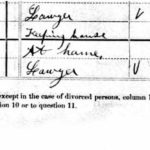 Lawyer V
Keeping house
At home,
Lawyer V
except in the case of divorced persons, column 1
tion 10 or to question 11.